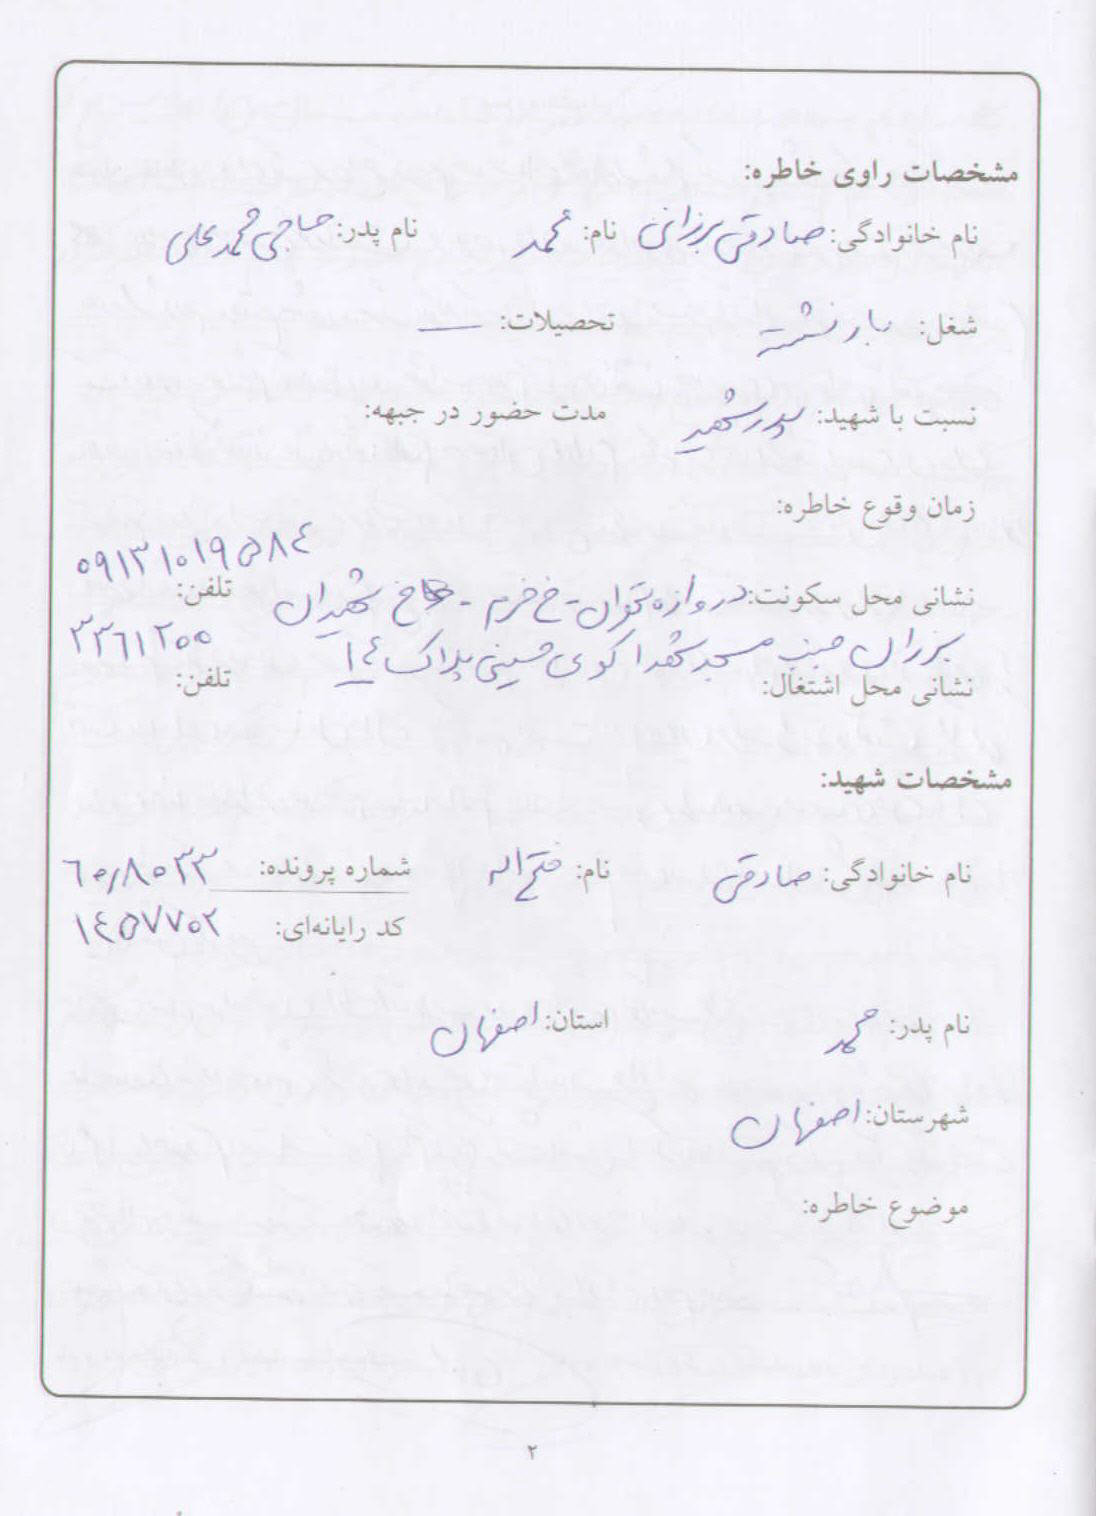 مشخصات راوی خاطره:
نام خانوادگی: صادقی برزانی نام: محمد نام پدر: حاجی محمد علی
شغل: بازنشسته تحصیلات: —
نسبت با شهید: پدر شهید مدت حضور در جبهه:
زمان وقوع خاطره:
۰۹۱۳۱۰۱۹۵۸۴
نشانی محل سکونت: دروازه تهران - خ خرم - خ شهیدان تلفن:
برزان جنب مسجد شهدا کوی حسینی پلاک ۱۴ ۳۳۶۱۲۰۰
نشانی محل اشتغال: تلفن:
مشخصات شهید:
نام خانوادگی: صادقی نام: فتح اله شماره پرونده: ۶۰۸۰۳۳
کد رایانه‌ای: ۱۴۵۷۷۰۲
نام پدر: محمد استان: اصفهان
شهرستان: اصفهان
موضوع خاطره:
۲